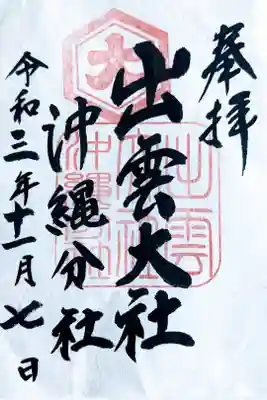 奉拝
出雲大社
沖縄分社
令和三年十一月七日
大
出雲
大社
沖縄
分社